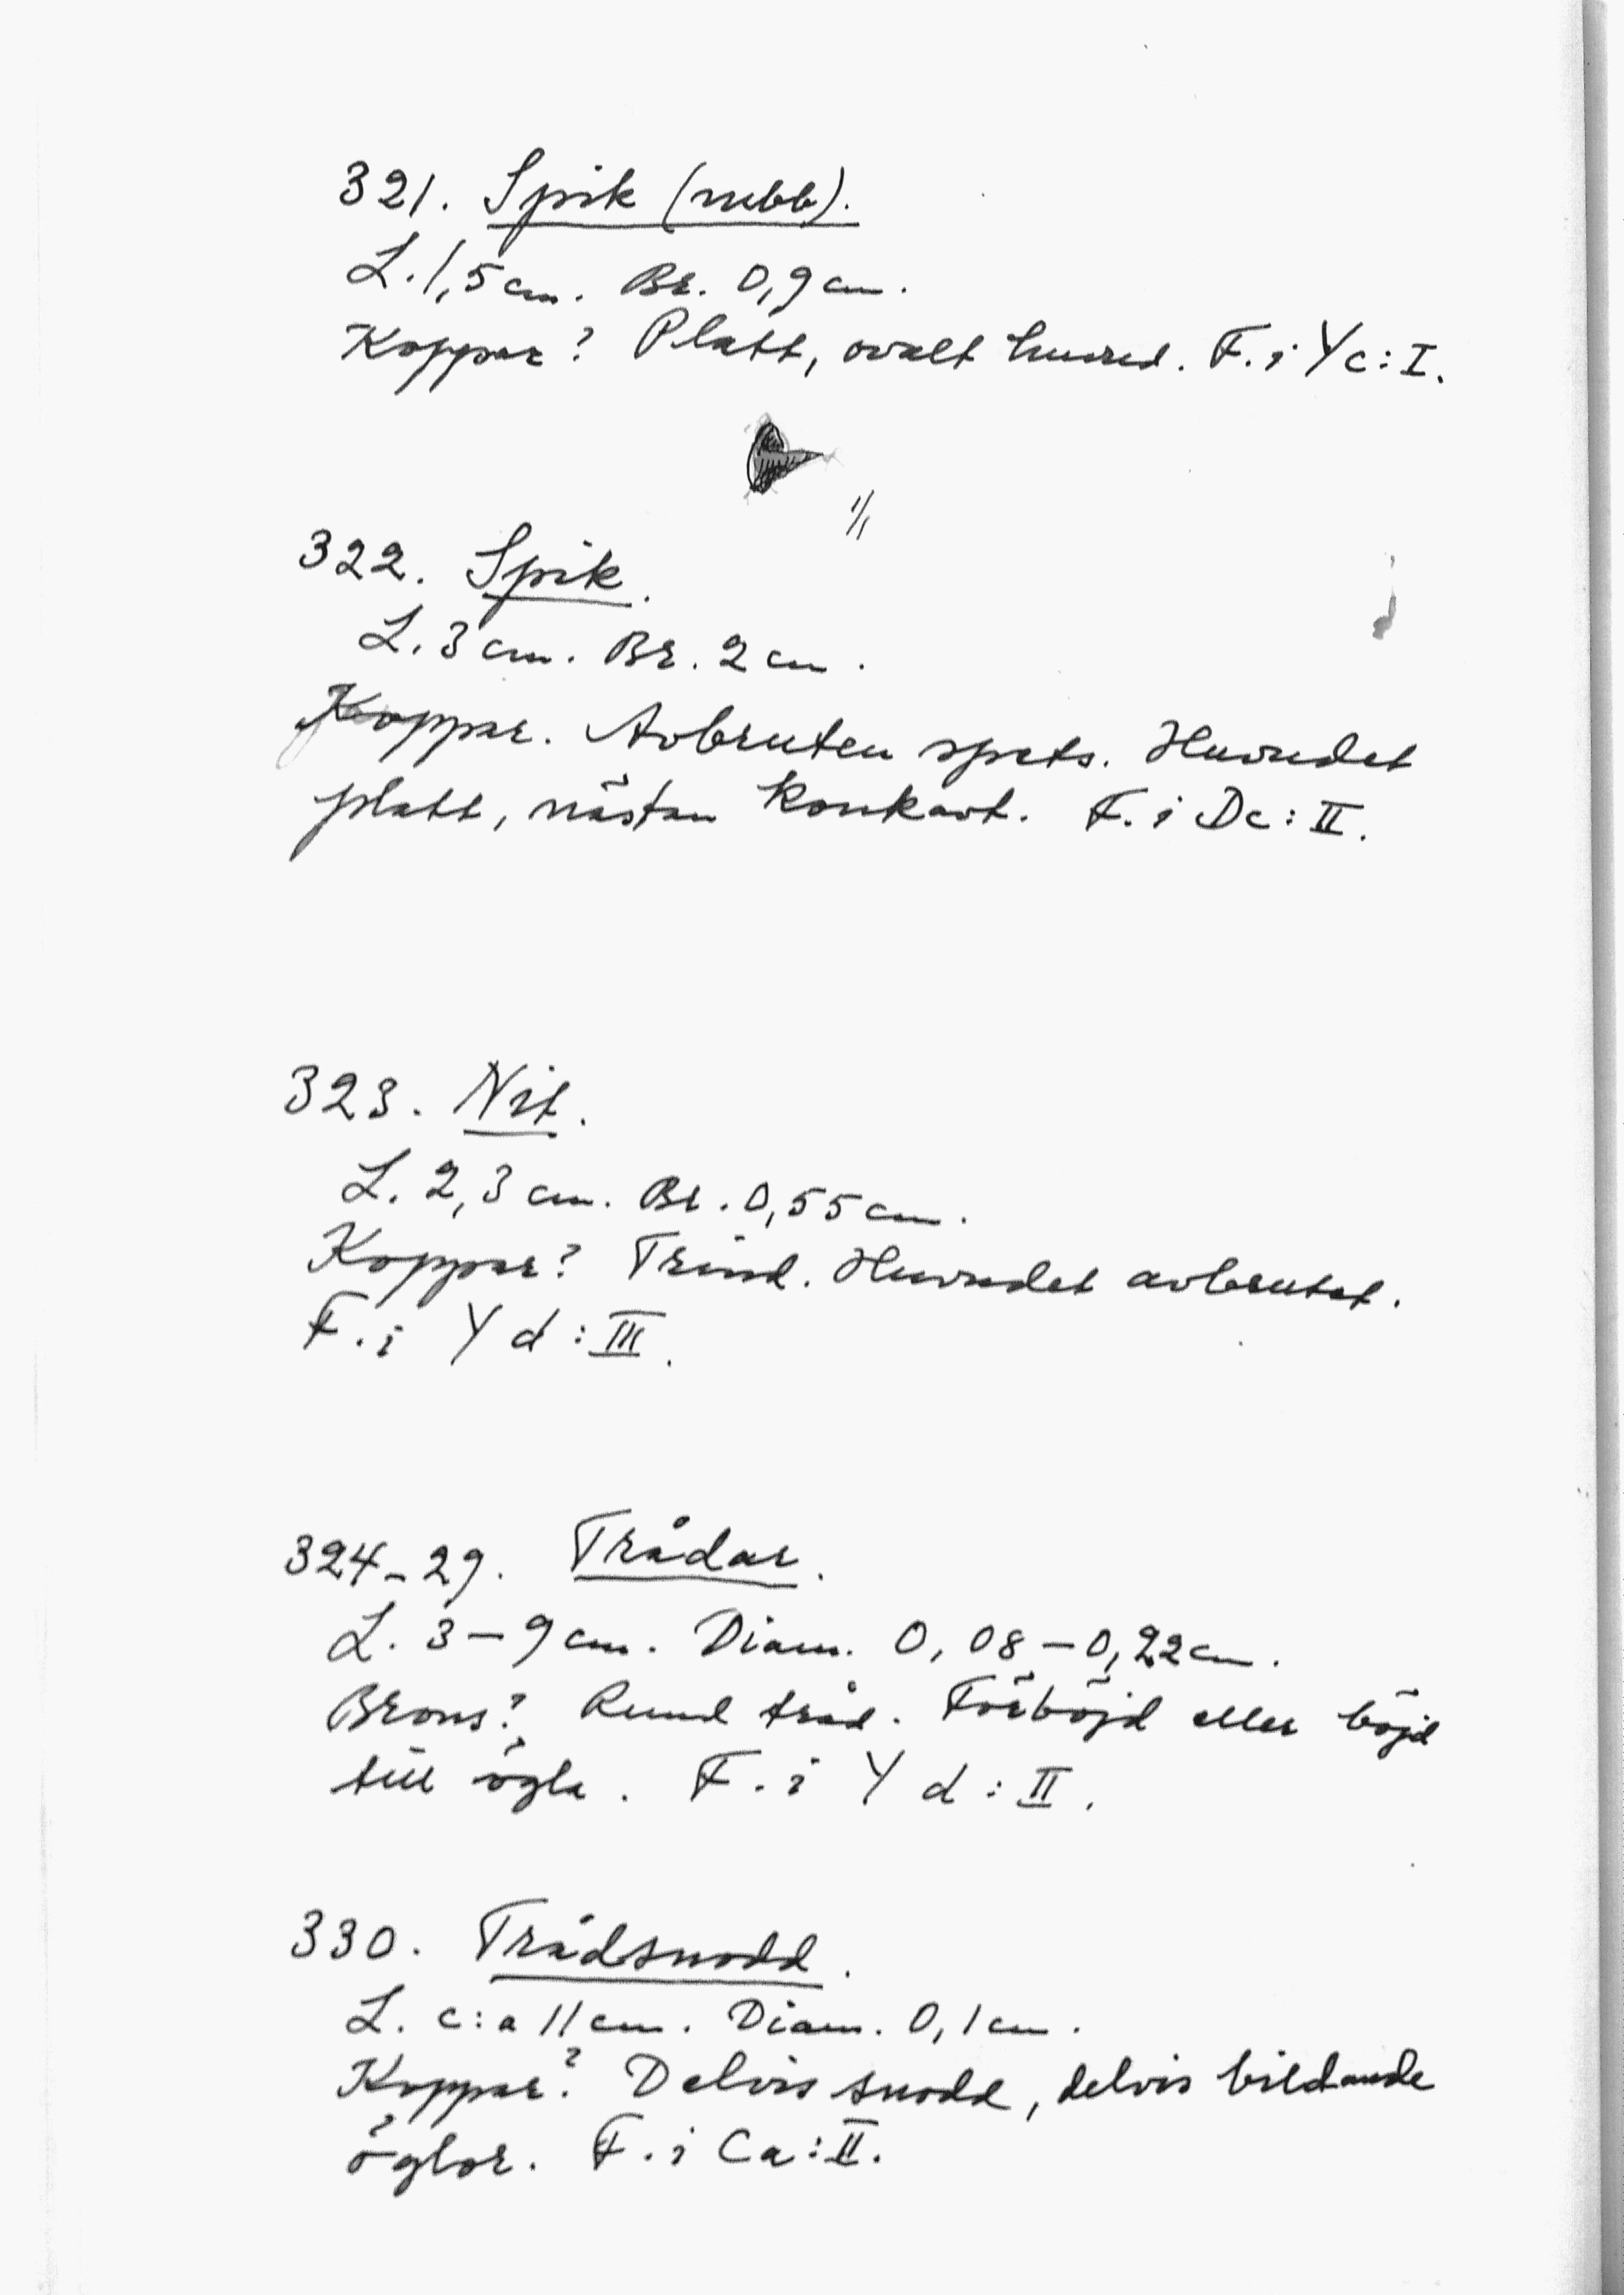 321. Spik (nubb).
L. 1,5 cm. Br. 0,9 cm.
Koppar? Platt, ovalt huvud. F. i Yc: I.
1/1
322. Spik.
L. 3 cm. Br. 2 cm.
Koppar. Avbruten spets. Huvudet
platt, nästan konkavt. F. i Dc: II.
323. Nit.
L. 2,3 cm. Br. 0,55 cm.
Koppar? Trind. Huvudet avbrutet.
F. i Yd: III.
324-29. Trådar.
L. 3-9 cm. Diam. 0,08-0,22 cm.
Brons? Rund tråd. Förböjd eller böjd
till ögla. F. i Yd: II.
330. Trådsnodd.
L. c:a 11 cm. Diam. 0,1 cm.
Koppar? Delvis snodd, delvis bildande
öglor. F. i Ca: II.